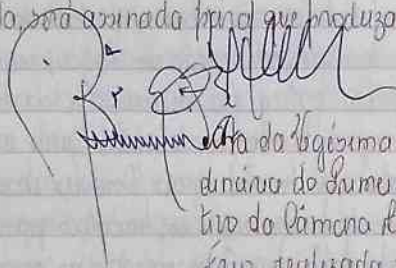 da, será assinada para que produza
Ata da Vigésima
dinária do Prime
tivo da Câmara
realizada